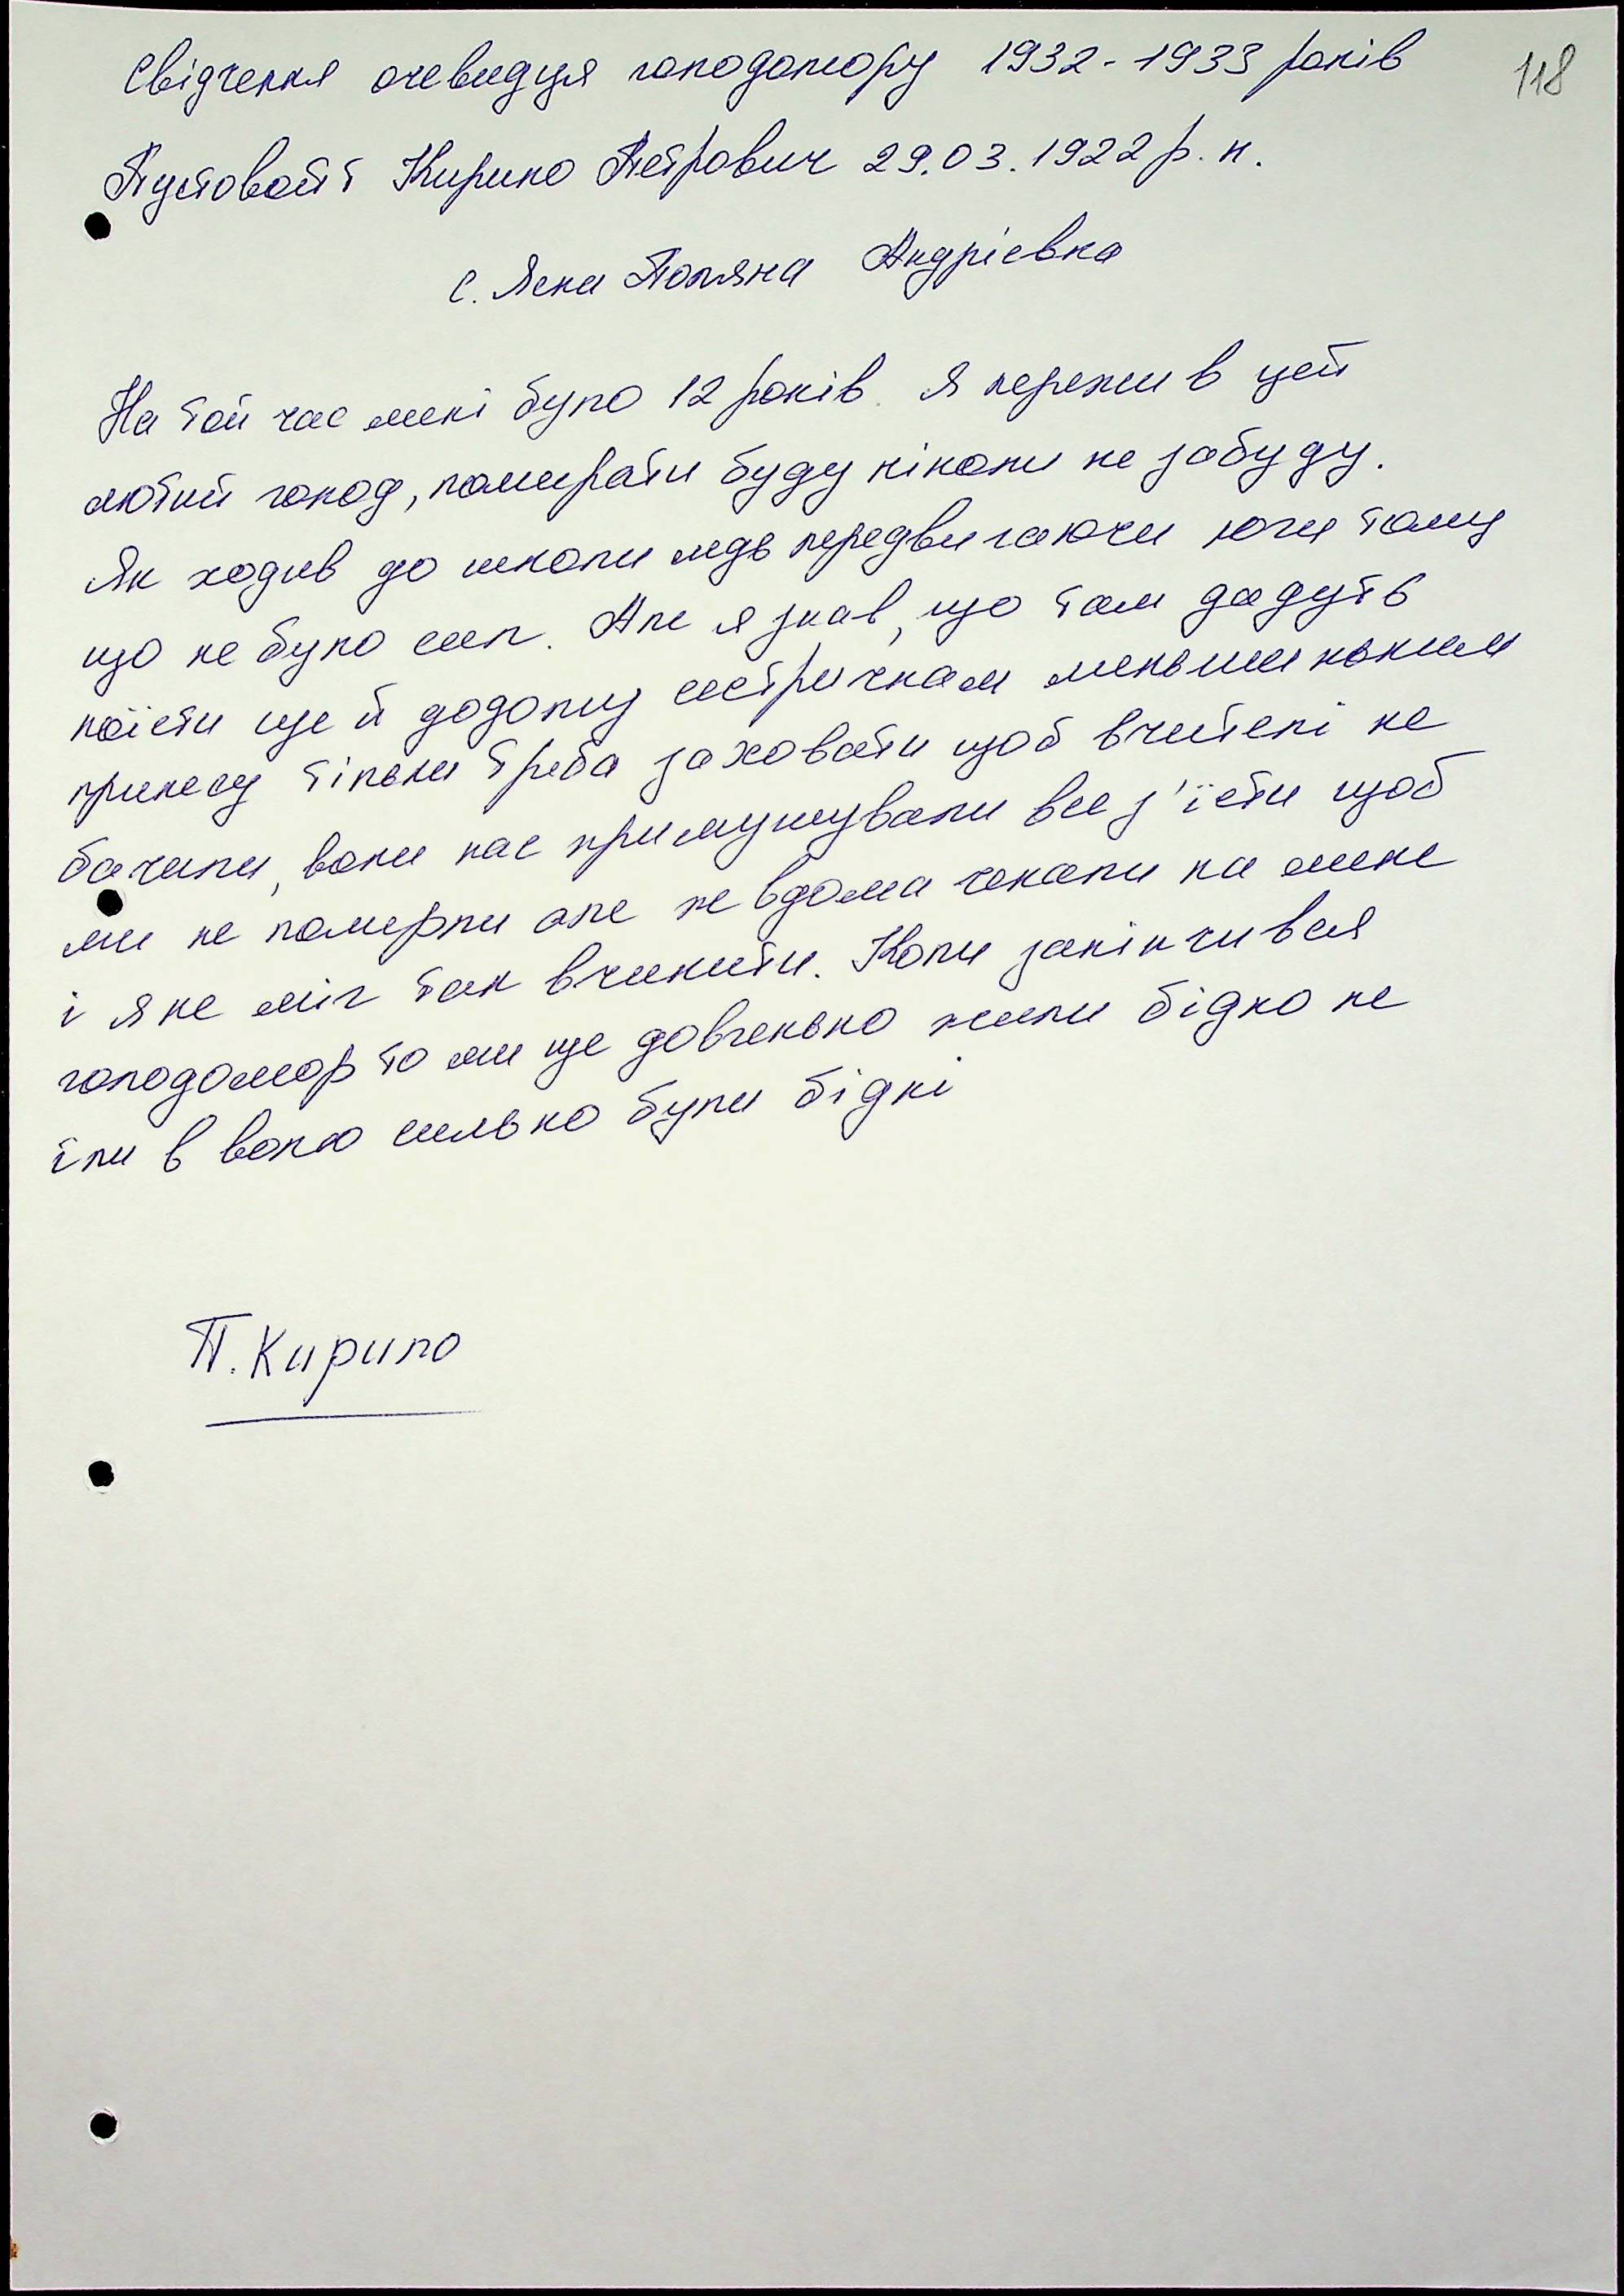 Свідчення очевидця голодомору 1932-1933 років
118
Пустовойт Кирило Петрович 29.03.1922 р.н.
с. Ясна Поляна Андріевка
На той час мені було 12 років. Я пережив цей
лютий голод, помирати буду ніколи не забуду.
Як ходив до школи ледь передвигаючи ноги тому
що не було сил. Але я знав, що там дадуть
поїсти ще й додому сестричкам меньшиньким
принесу тільки треба заховати щоб вчителі не
бачили, вони нас примушували все з'їсти щоб
ми не померли але ж вдома чекали на мене
і я не міг так вчинити. Коли закінчився
голодомор то ми ще довгенько жили бідно не
їли в волю сильно були бідні
П. Кирило